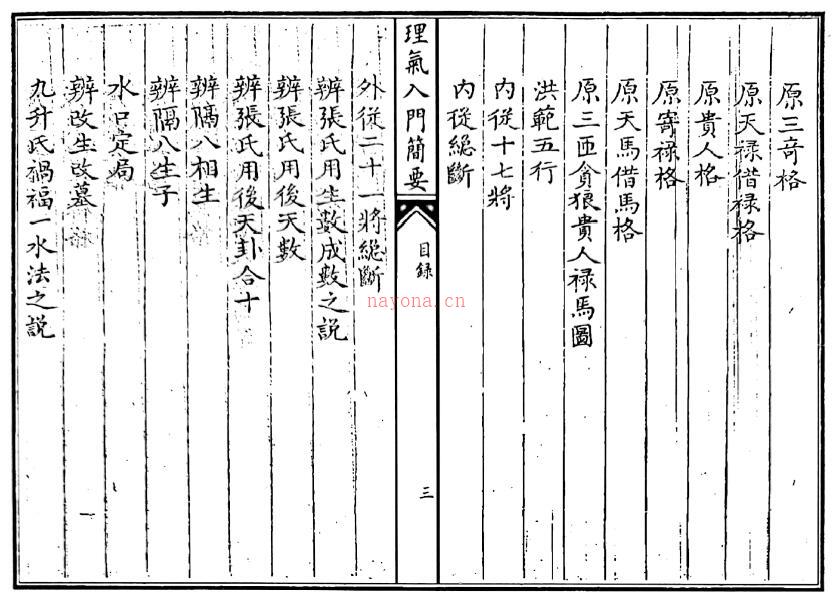 原三奇格
原天禄借禄格
原貴人格
原寄禄格
原天馬借馬格
原三匝貪狼貴人禄馬圖
洪範五行
內從十七將
內從總斷
理氣入門簡要
目録
三
外從二十一將總斷
辨張氏用生數成數之説
辨張氏用後天數
辨張氏用後天卦合十
辨隔八相生
辨隔八生子
水口定局
辨改生改墓
九升氏禍福一水法之説
nayona.cn